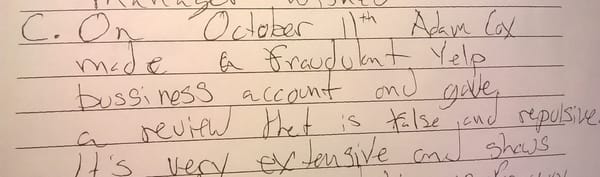 manager wished
C. On October 11th Adam Cox
made a fraudulant Yelp
bussiness account and gave
a review that is false and repulsive.
It's very extensive and shows